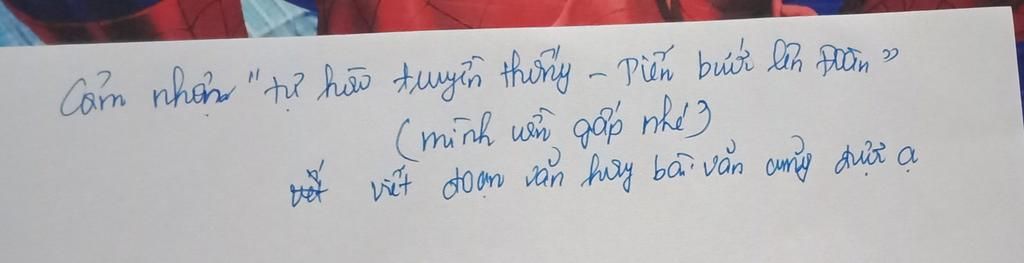 Cảm nhận "tự hào truyền thống - Tiến bước lên Đoàn"
(mình cần gấp nhé)
viết đoạn văn hay bài văn cũng được ạ